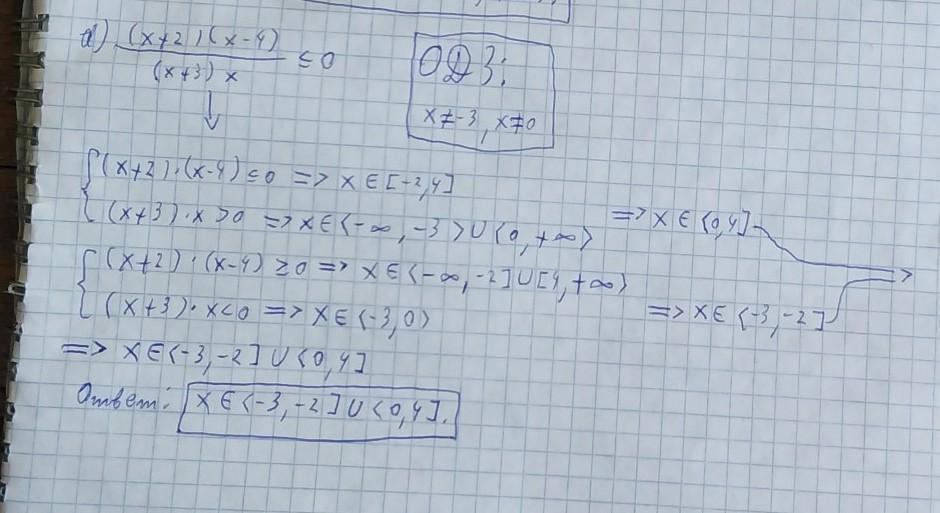 a) (x+2)(x-4) / (x+3) x ≤ 0
ОДЗ:
x≠-3, x≠0
{ (x+2)·(x-4) ≤ 0 => x ∈ [-2,4]
(x+3)·x > 0 => x ∈ <-∞, -3> ∪ <0, +∞>
=> x ∈ <0,4]
{ (x+2)·(x-4) ≥ 0 => x ∈ <-∞, -2] ∪ [4, +∞>
(x+3)·x < 0 => x ∈ <-3, 0>
=> x ∈ <-3, -2]
=> x ∈ <-3, -2] ∪ <0, 4]
Ответ: x ∈ <-3, -2] ∪ <0, 4].